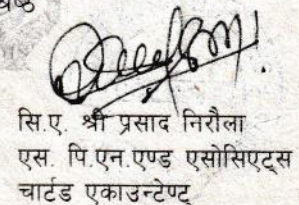 सि.ए. श्री प्रसाद निरौला
एस. पि.एन.एण्ड एसोसिएट्स
चार्टड एकाउन्टेण्ट